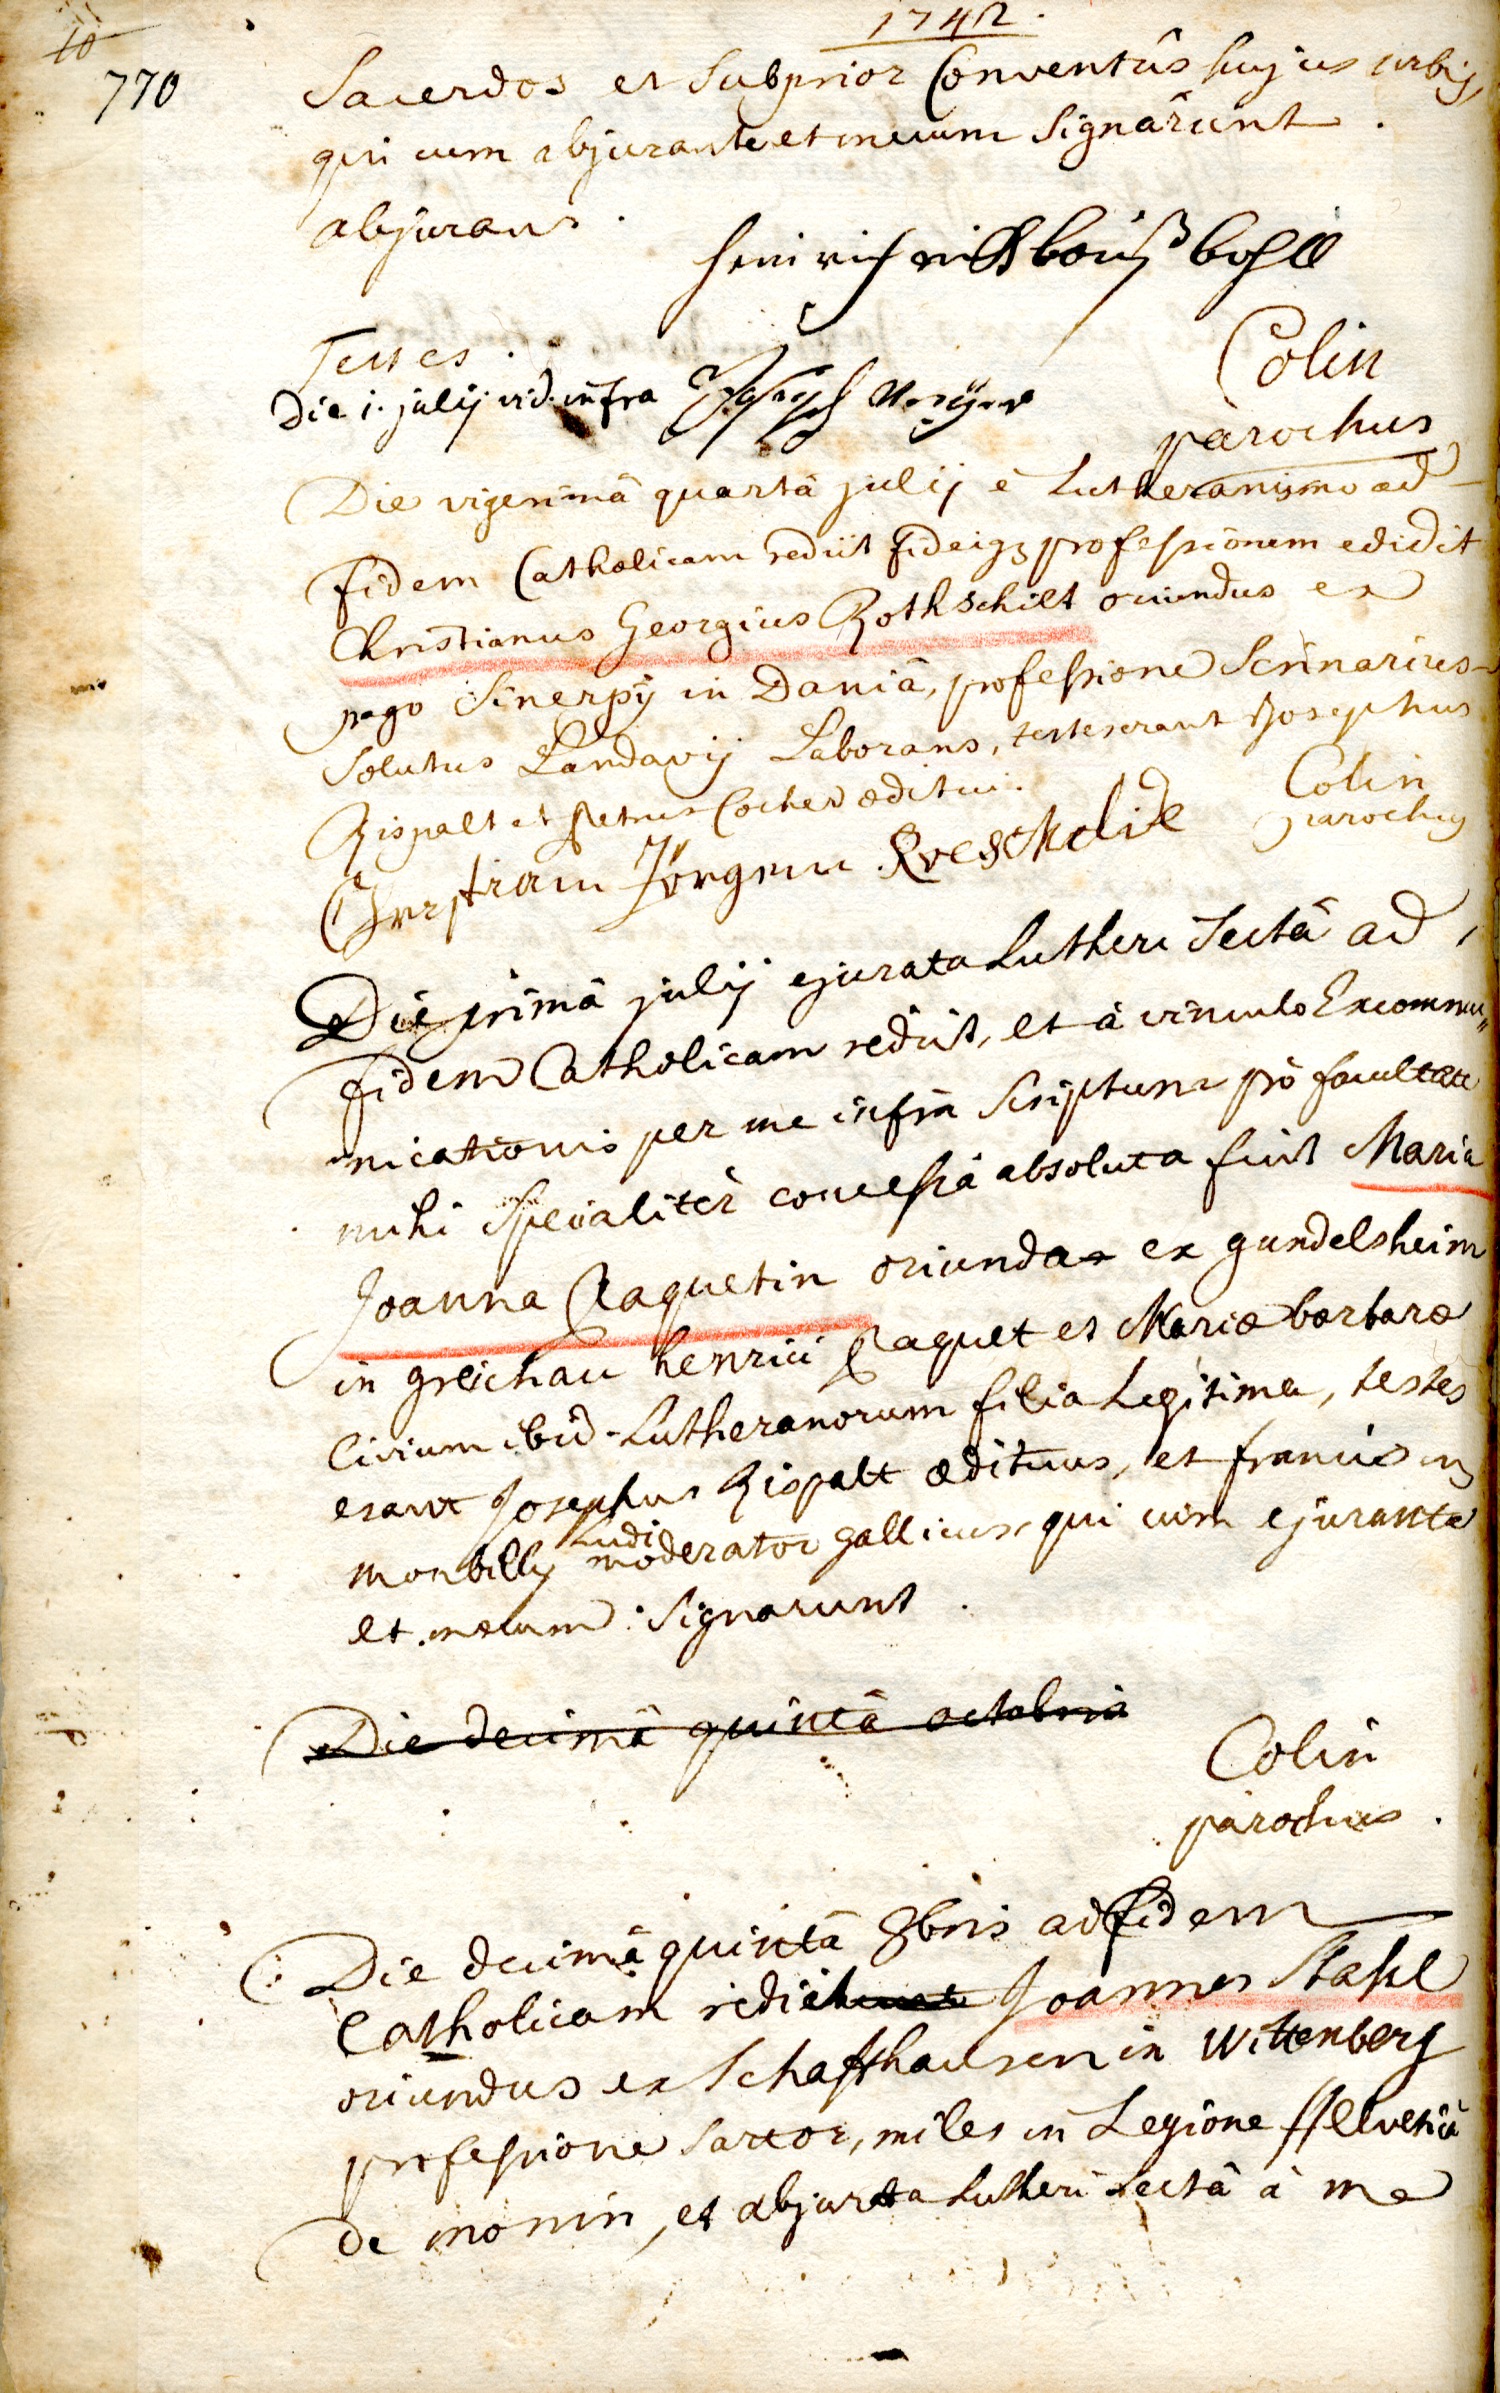 1742.
10
770
Sacerdos et Subprior Conventûs hujus urbis,
qui cum abjurante et mecum Signârunt.
abjurans.
Testes.
Colin
parochus
Die 1. julij vid. infra Joseph
Die vigesimâ quartâ julij è Lutheranismo ad
fidem Catholicam rediit fideiq3 professionem edidit
Christianus Georgius Rothschilt oriundus ex
pago Sinerpij in Daniâ, professione Scrinarius
Solutus Landavij Laborans, testes erant Josephus
Rispalt et Petrus Cocher æditui.
Colin
parochus
Christian Jörgen
Die primâ julij ejurata Lutheri Sectâ ad
fidem Catholicam rediit, et à vinculo Excommu„
nicationis per me infra Scriptum pro facultate
mihi Specialiter concessâ absoluta fuit Maria
Joanna Raquetin oriunda ex gundelsheim
in greichau henrici Raquet et Mariæ barbaræ
Civium ibid. Lutheranorum filia Legitima, testes
erant Josephus Rispalt ædituus, et franciscus
monbilly Ludi moderator gallicus, qui cum ejurante
et mecum Signarunt.
Die decimâ quintâ octobris
Colin
parochus.
Die decimâ quintâ 8bris ad fidem
Catholicam rediit Joannes Stahl
oriundus ex Schaffhausen in Wittenberg
professione Sartor, miles in Legione Helvetica
de monin, et abjurata Lutheri Sectâ à me